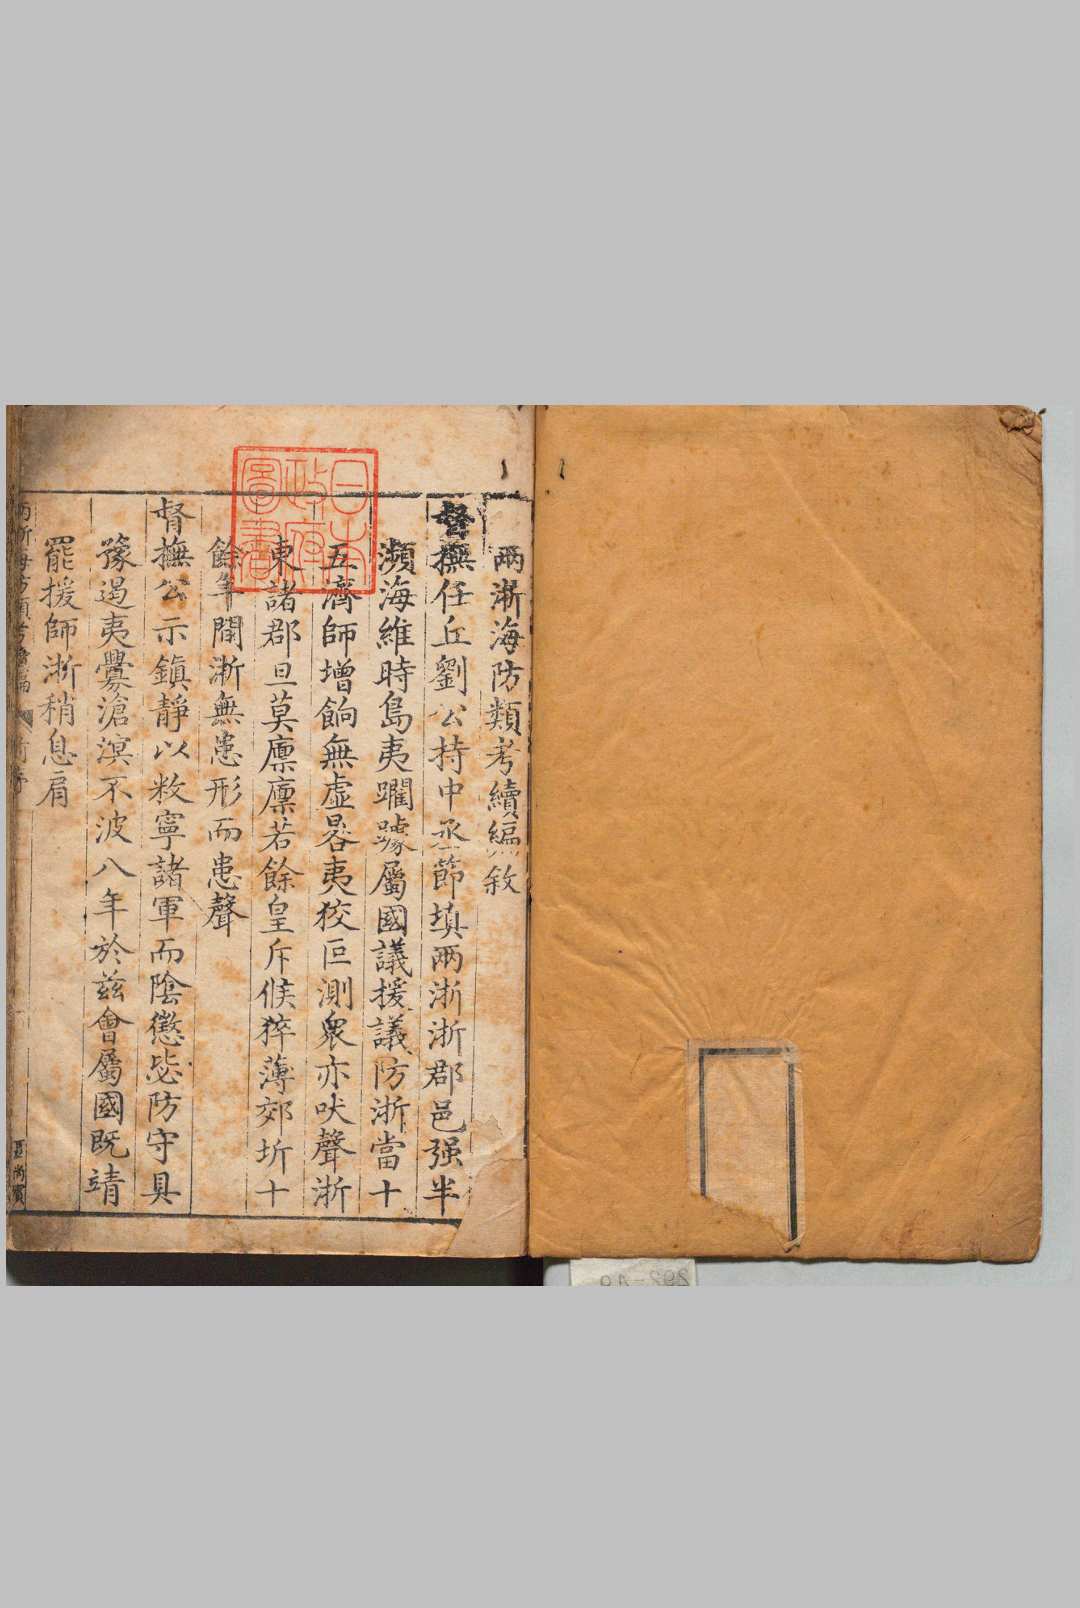 兩浙海防類考續編敘
督撫任丘劉公持中丞節填兩浙浙郡邑强半
瀕海維時島夷躙𨅬屬國議援議防浙當十
五濟師增餉無虛晷夷狡叵測衆亦吠聲浙
東諸郡旦莫廪廪若餘皇斥候猝薄郊圻十
餘年間浙無患形而患聲
督撫公示鎮靜以敉寧諸軍而陰懲毖防守具
豫遏夷釁滄溟不波八年於茲會屬國旣靖
罷援師浙稍息肩
兩浙海防類考續編
日本
政府
圖書